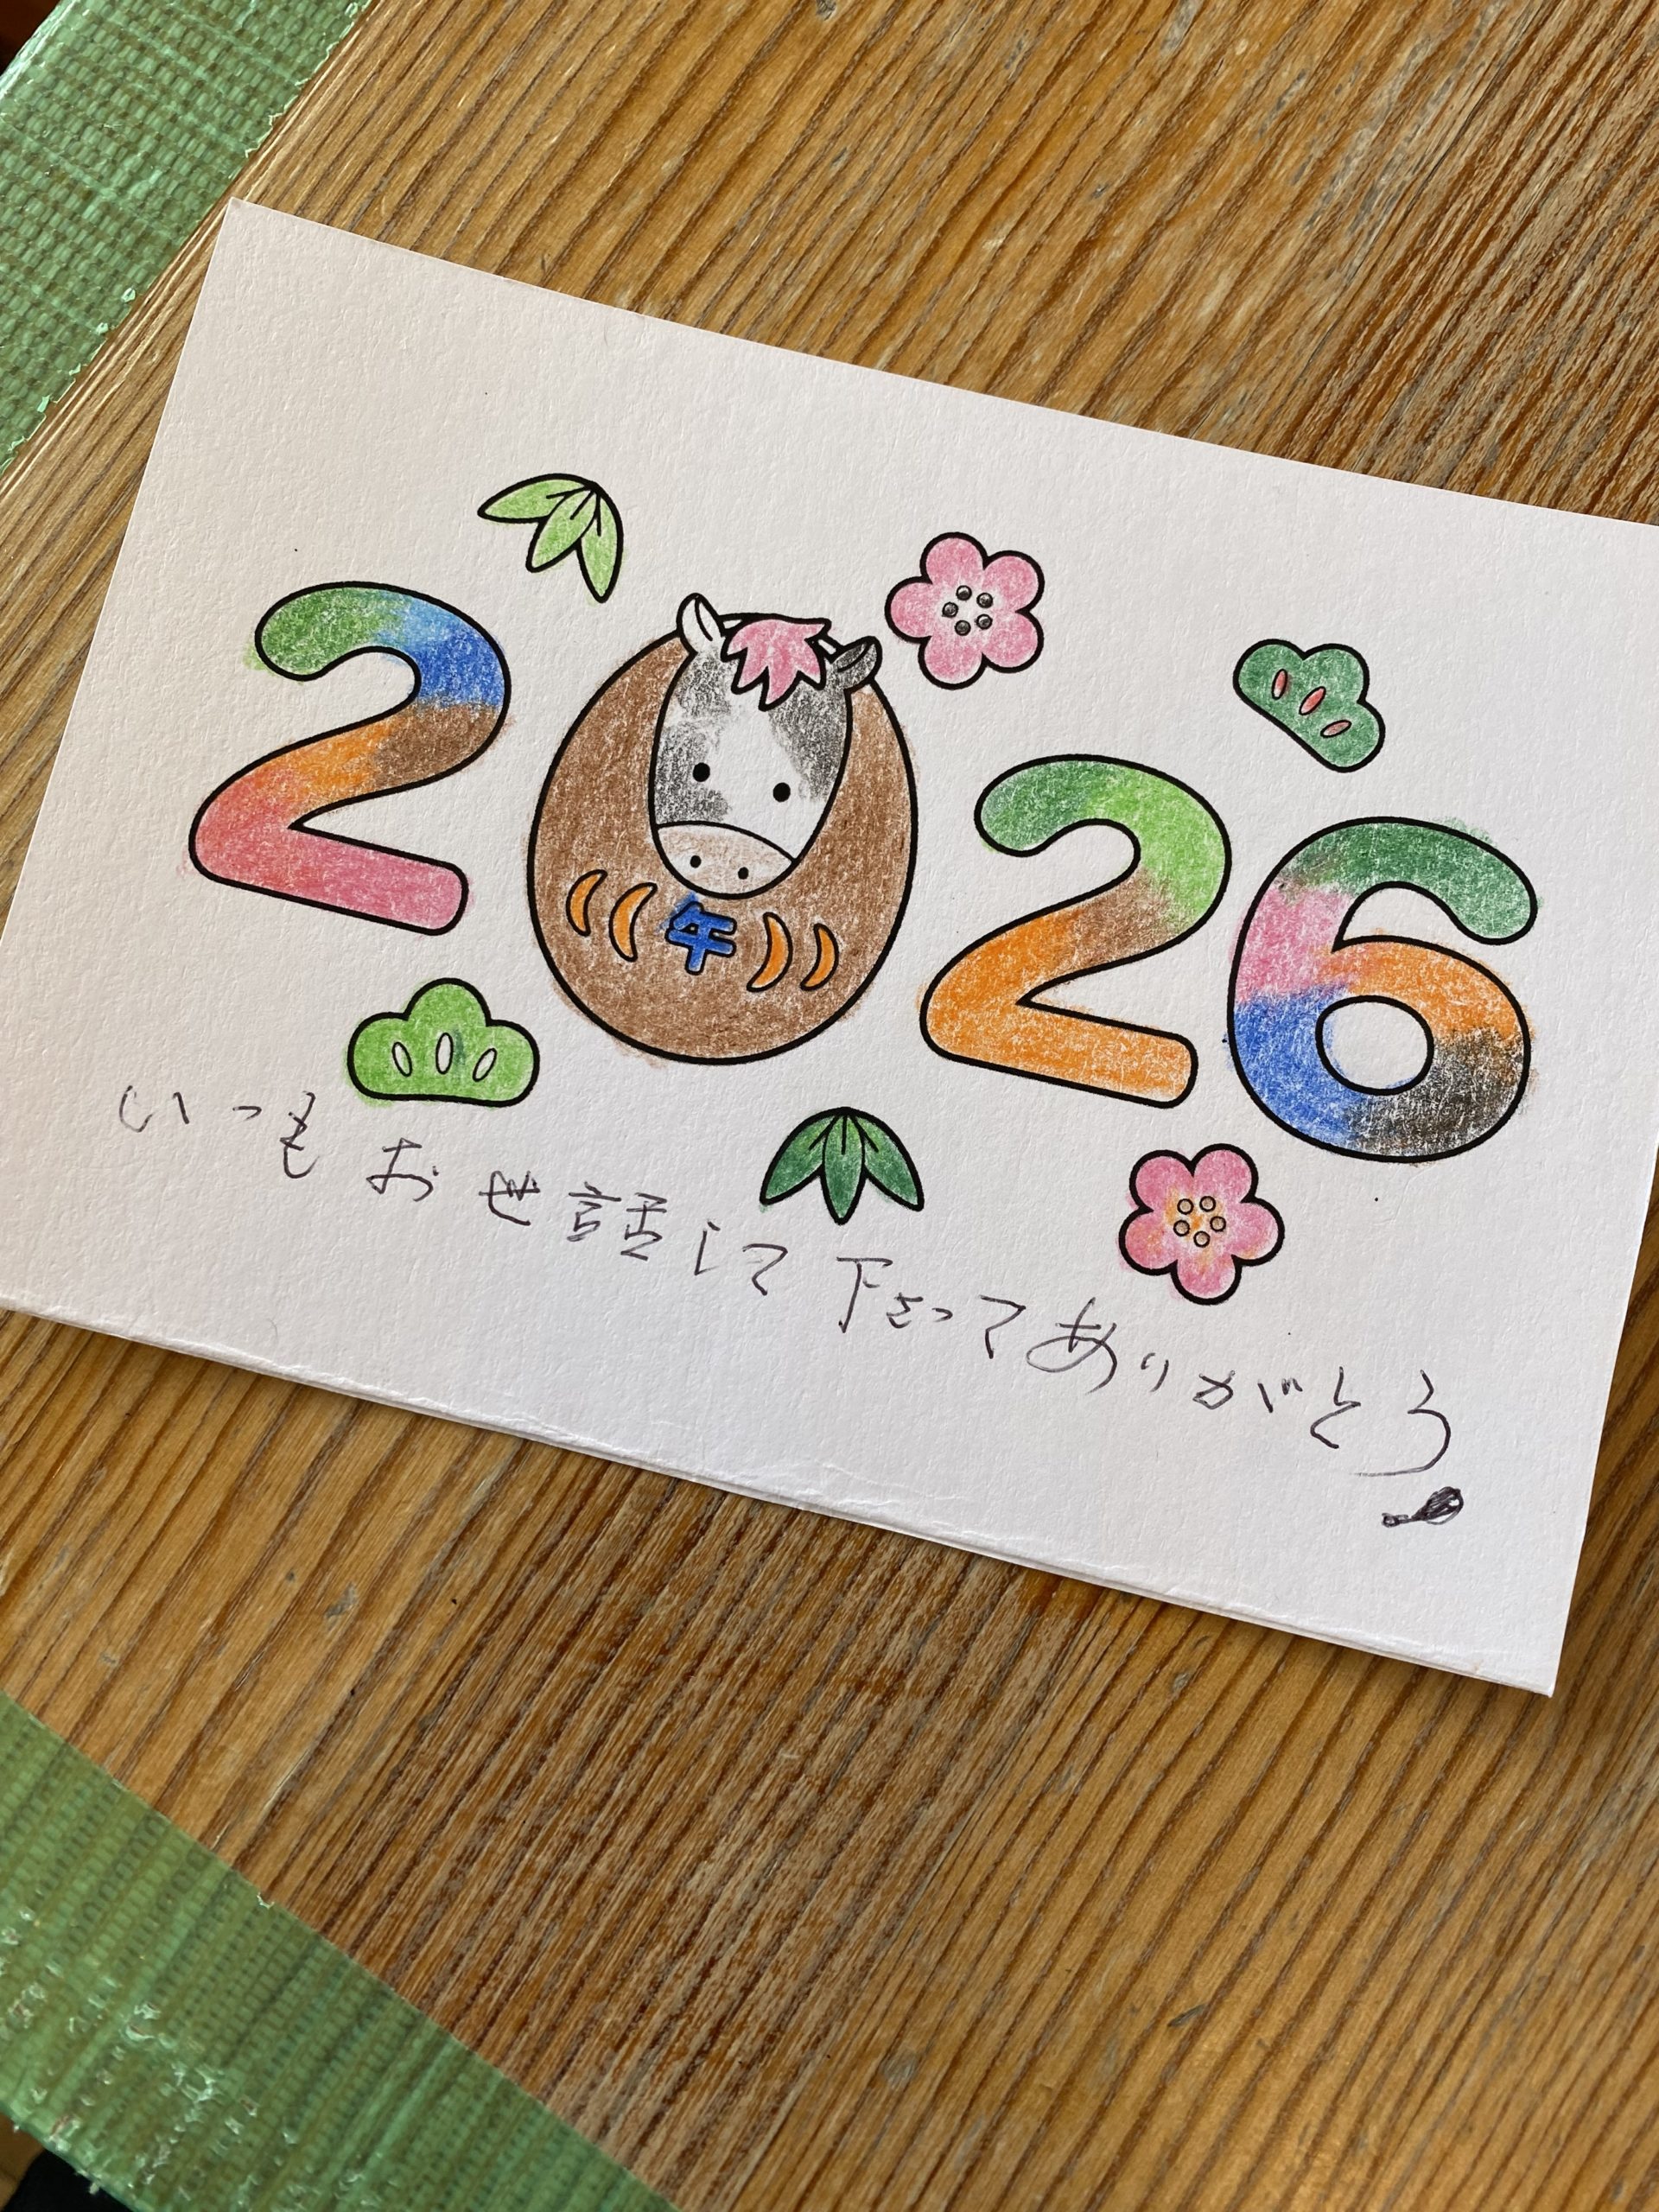 2026
午
いつもお世話して下さってありがとう